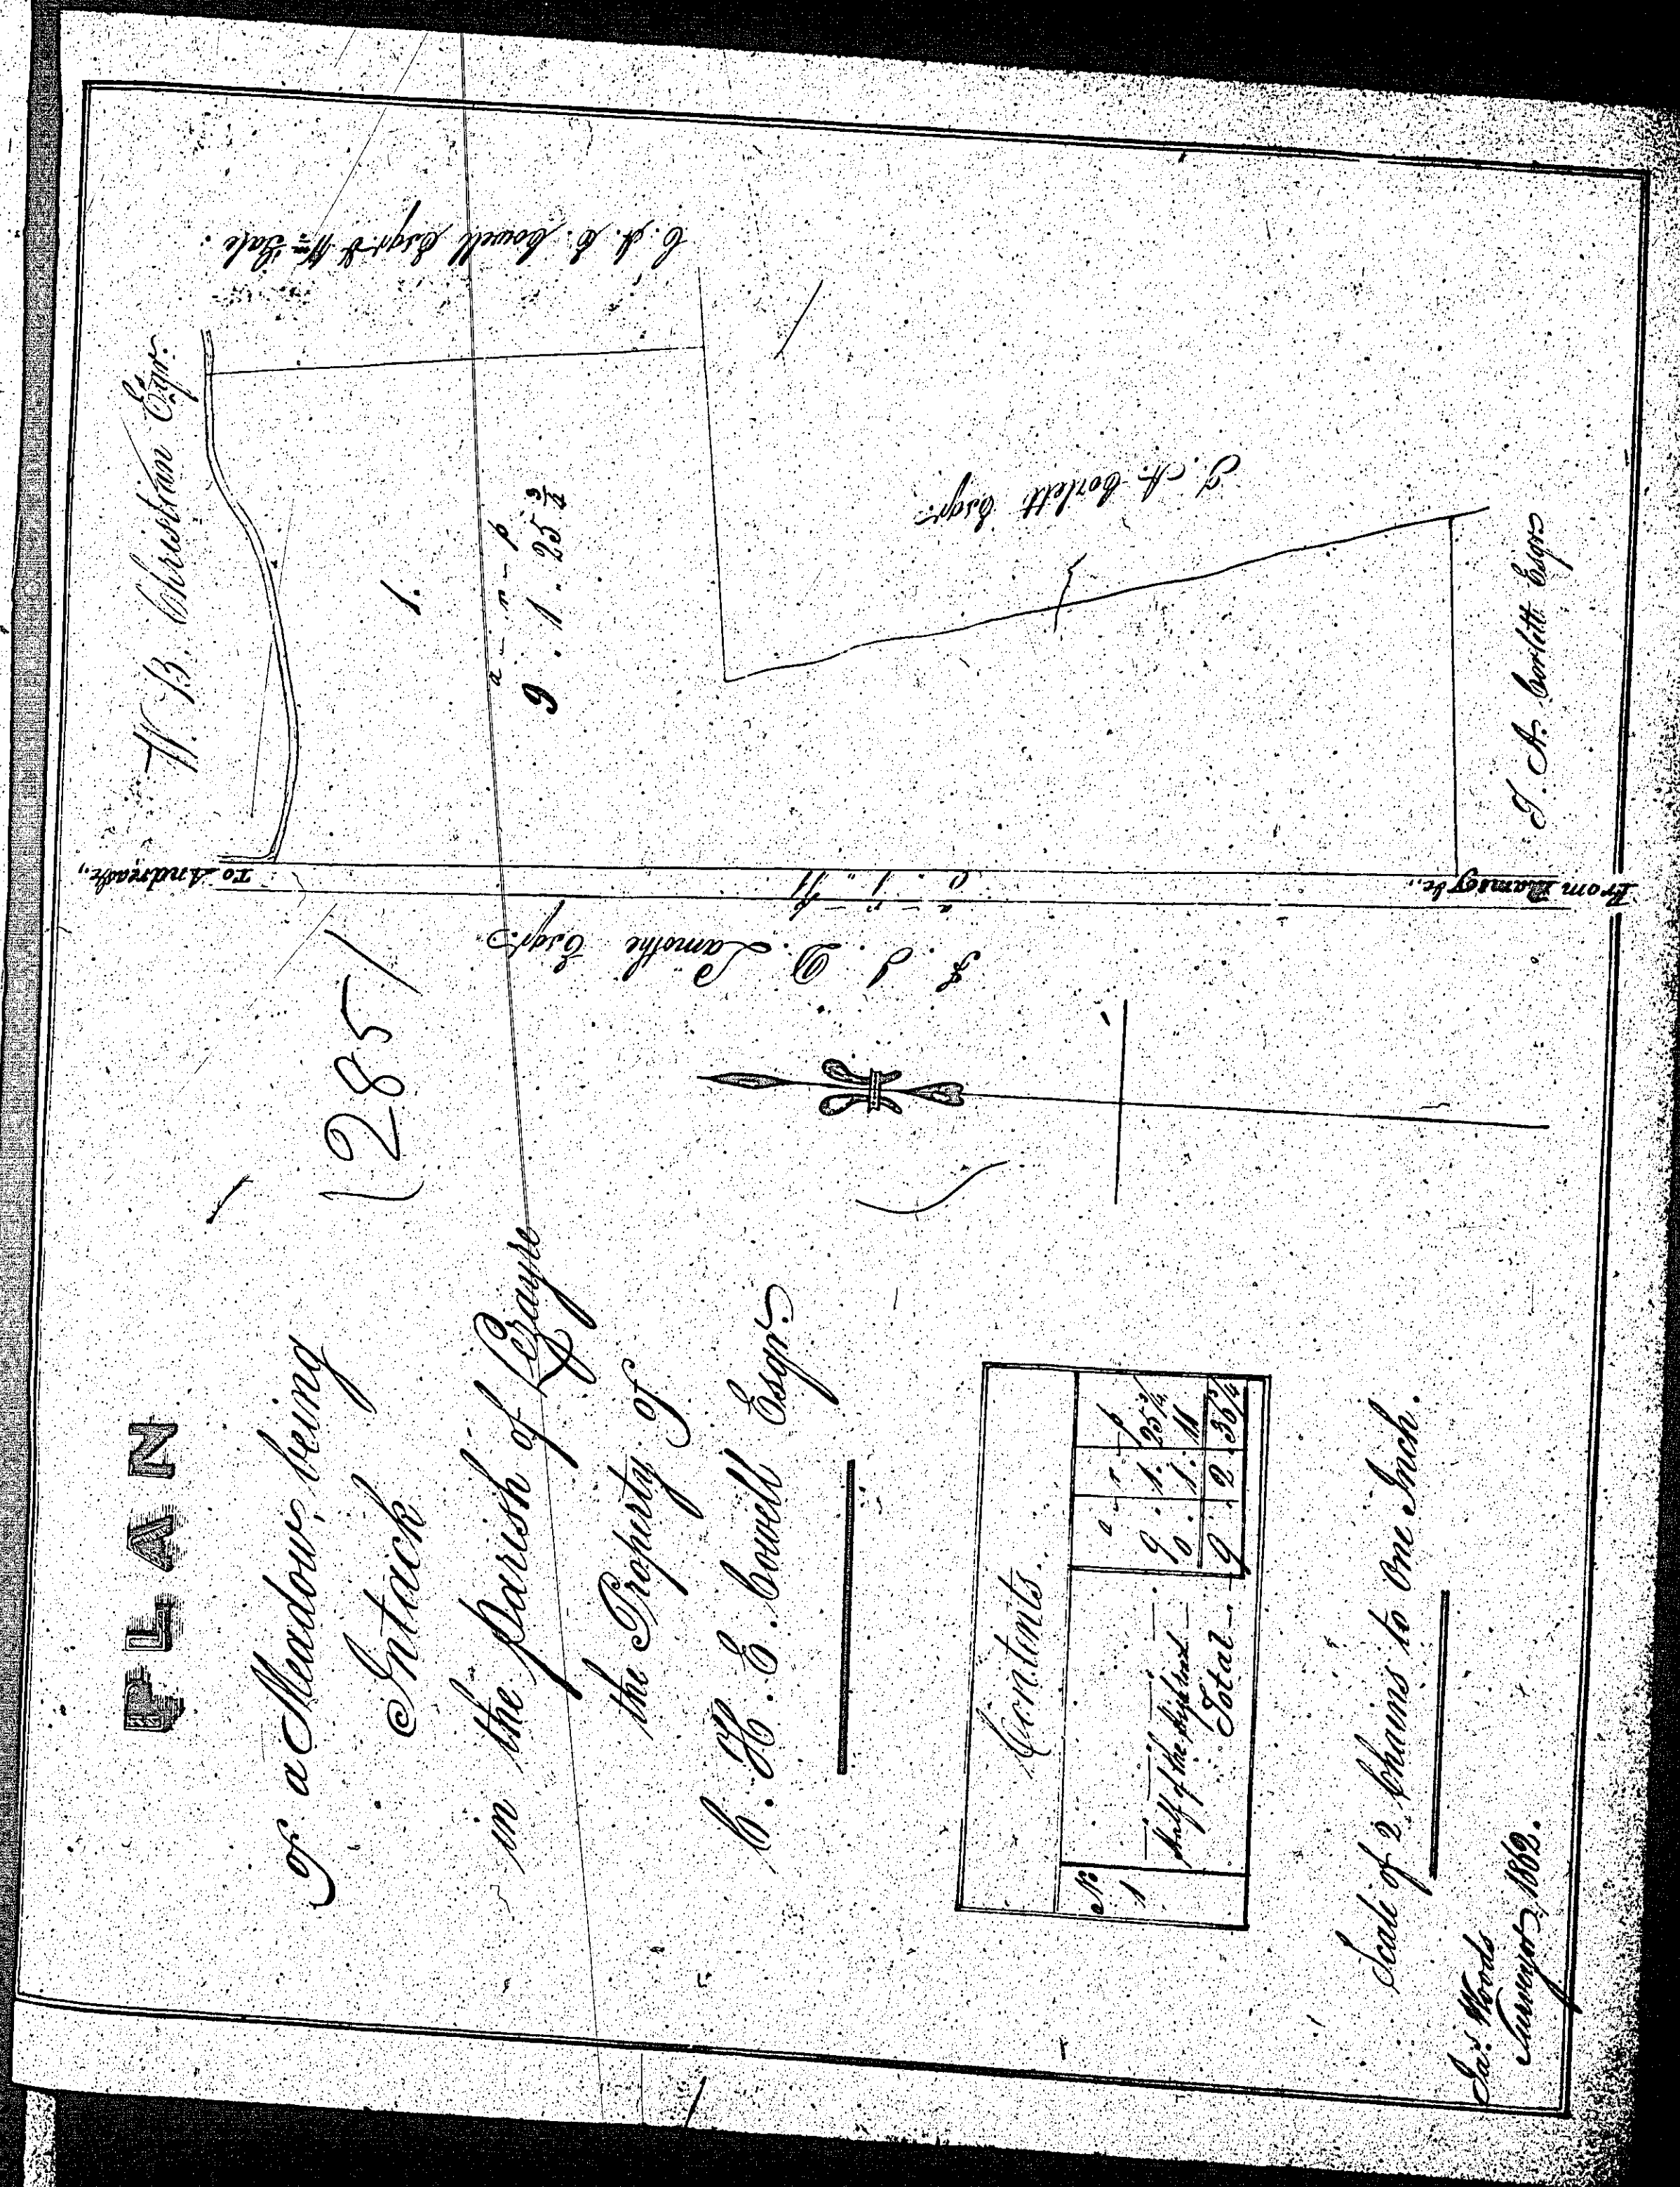 PLAN
of a Meadow, being
Intack
in the parish of Lezayre
the Property of
C. H. E. Cowell Esqr.
Contents.
No a - r - p
1 — " — " — 9 . 1 . 25 3/4
Half of the Highroad — 0 . 1 . 11
Total — 9 . 2 . 36 3/4
Scale of 2 Chains to One Inch.
Jas. Woods
Surveyor, 1862.
1285
W. B. Christian Esqr.
C. H. E. Cowell Esqr. & Wm. Gale.
1.
a - r - p
9 . 1 . 25 3/4
T. A. Corlett Esqr.
To Andreas &c.,
a - r - p
0 . 1 . 11
F. J. D. Lamothe Esqr.
From Ramsey &c.,
T. A. Corlett Esqr.